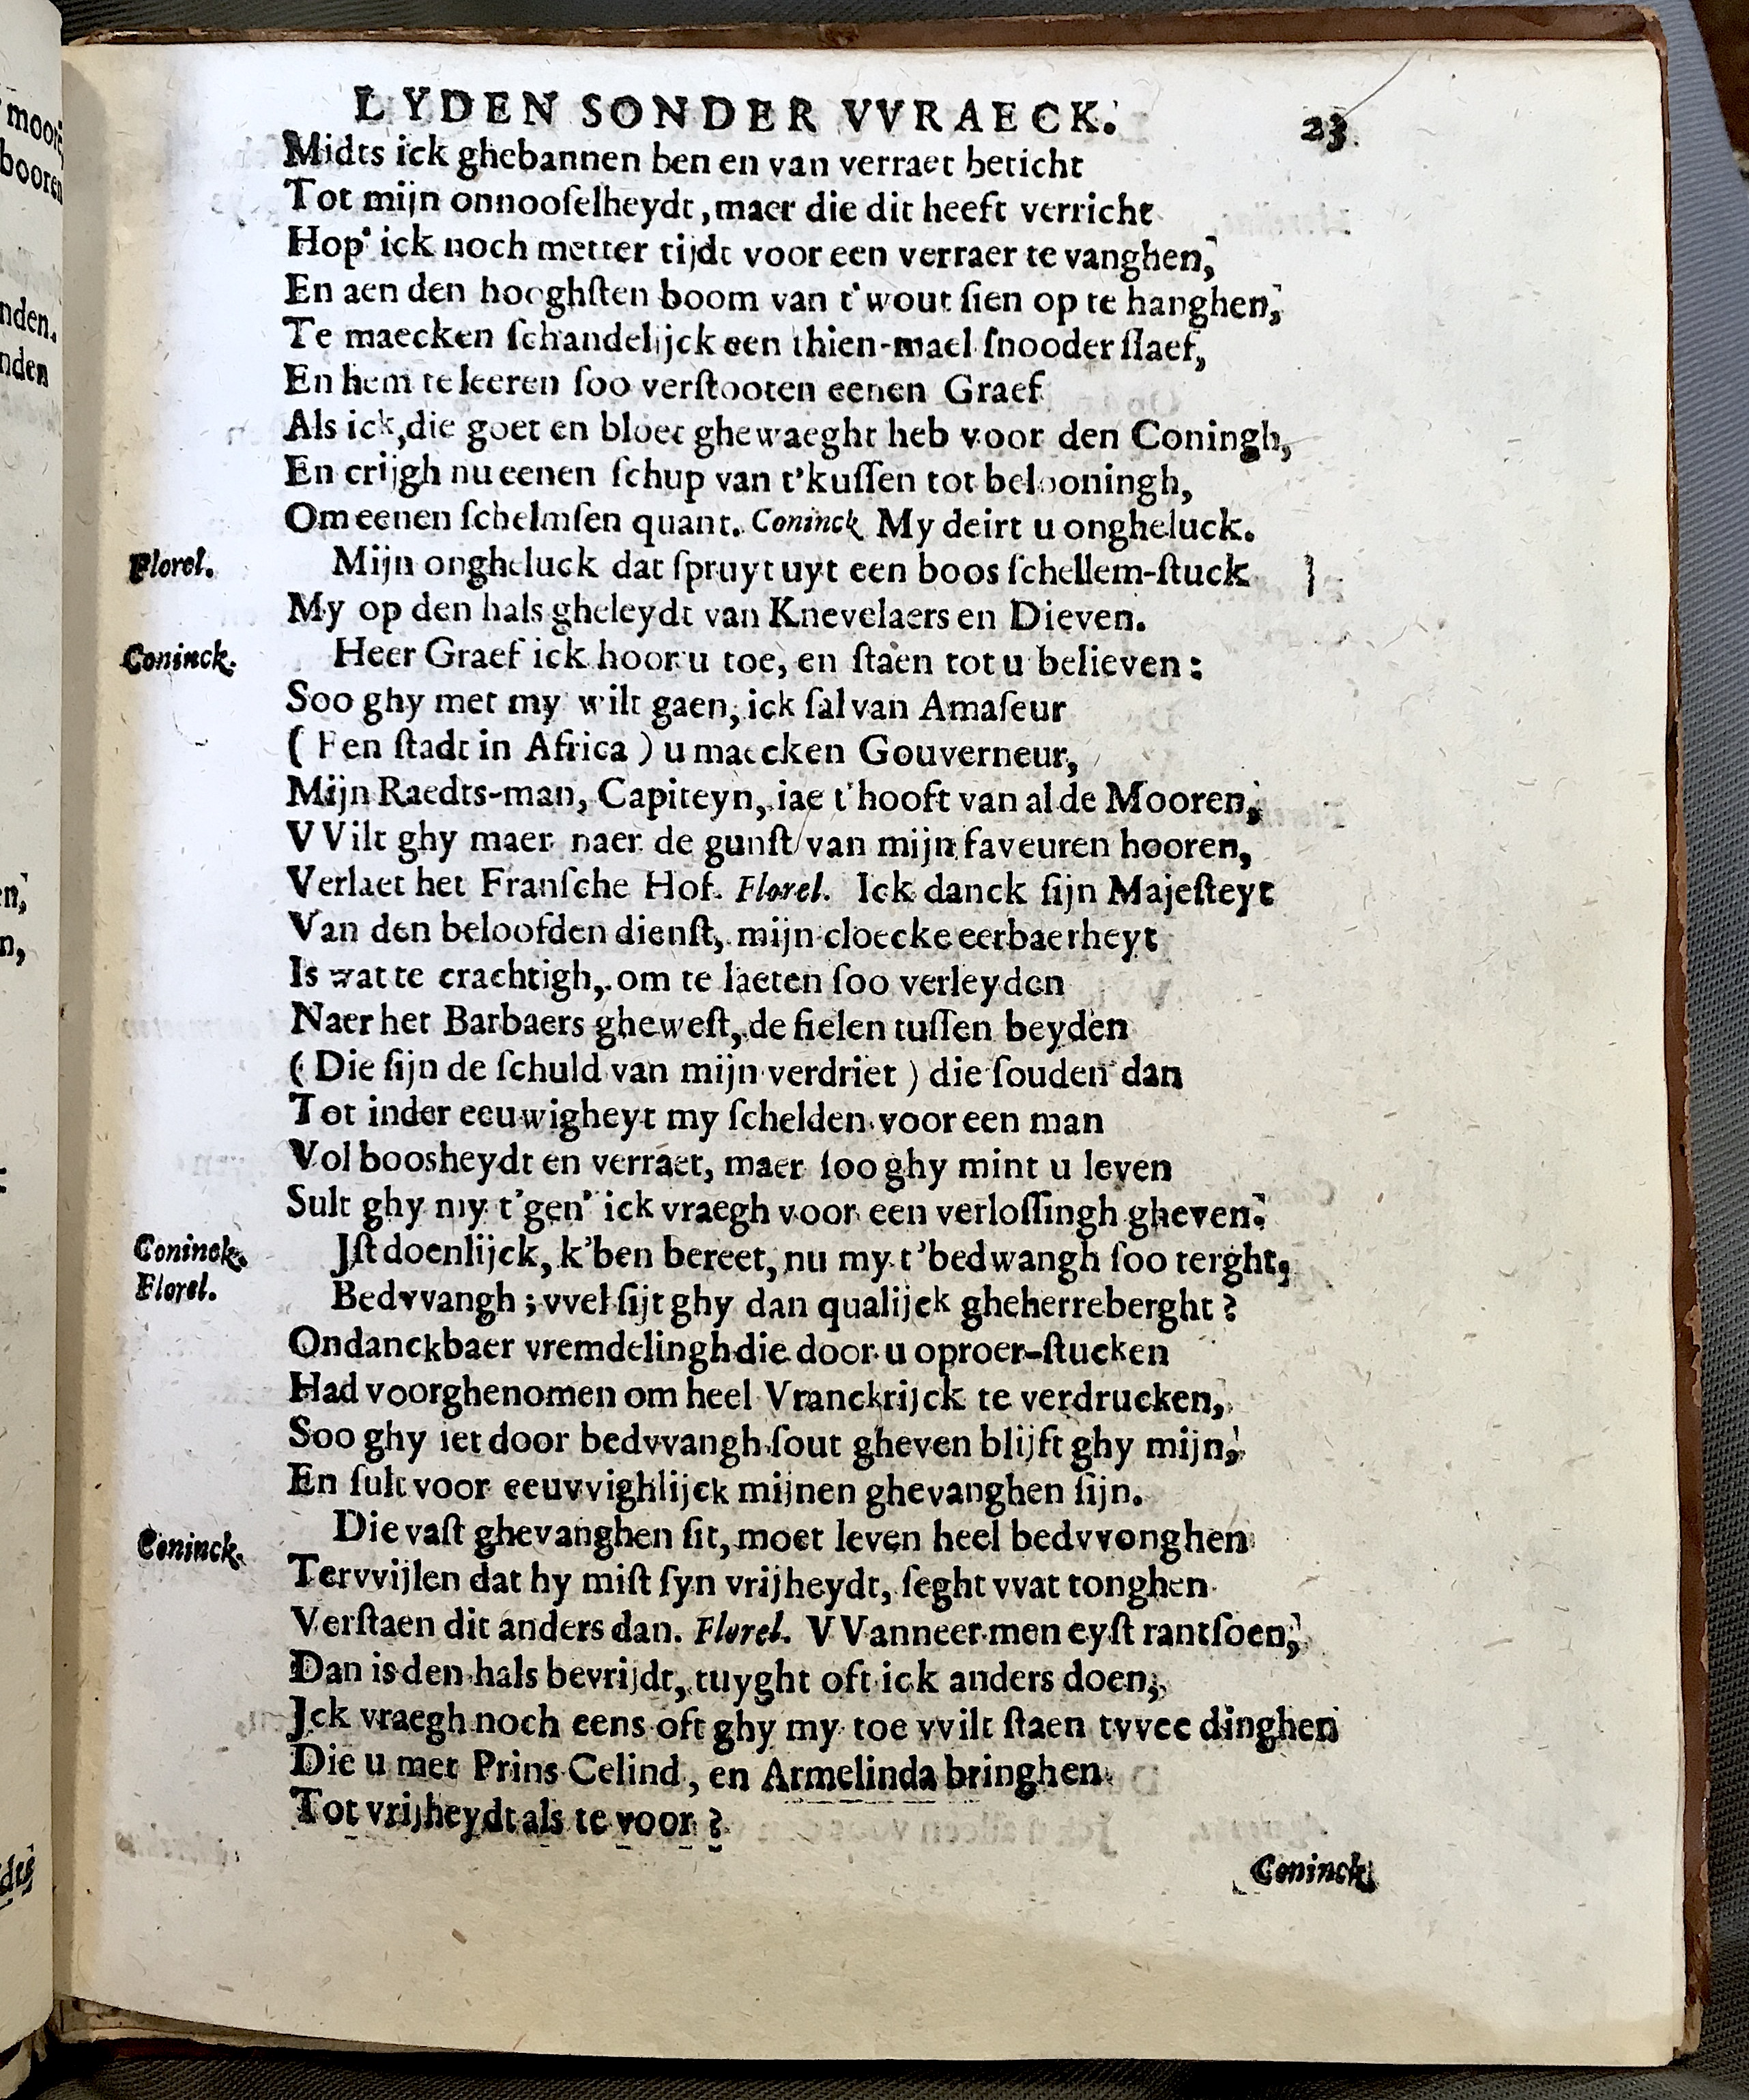 LYDEN SONDER VVRAECK. 23
Midts ick ghebannen ben en van verraet beticht
Tot mijn onnooſelheydt, maer die dit heeft verricht
Hop' ick noch metter tijdt voor een verraer te vanghen,
En aen den hooghſten boom van t'wout ſien op te hanghen,
Te maecken ſchandelijck een thien-mael ſnooder ſlaef,
En hem te leeren ſoo verſtooten eenen Graef
Als ick, die goet en bloet ghewaeght heb voor den Coningh,
En crijgh nu eenen ſchup van t'kuſſen tot belooningh,
Om eenen ſchelmſen quant. Coninck. My deirt u ongheluck.
Florel. Mijn ongheluck dat ſpruyt uyt een boos ſchellem-ſtuck
My op den hals gheleydt van Knevelaers en Dieven.
Coninck. Heer Graef ick hoor u toe, en ſtaen tot u believen:
Soo ghy met my wilt gaen, ick ſal van Amaſeur
( Een ſtadt in Africa ) u maecken Gouverneur,
Mijn Raedts-man, Capiteyn, iae t'hooft van al de Mooren,
VVilt ghy maer naer de gunſt van mijn faveuren hooren,
Verlaet het Franſche Hof. Florel. Ick danck ſijn Majeſteyt
Van den beloofden dienſt, mijn cloecke eerbaerheyt
Is wat te crachtigh, om te laeten ſoo verleyden
Naer het Barbaers gheweſt, de fielen tuſſen beyden
( Die ſijn de ſchuld van mijn verdriet ) die ſouden dan
Tot inder eeuwigheyt my ſchelden voor een man
Vol boosheydt en verraet, maer ſoo ghy mint u leven
Sult ghy my t'gen' ick vraegh voor een verloſſingh gheven.
Coninck. Jſt doenlijck, k'ben bereet, nu my t'bedwangh ſoo terght,
Florel. Bedvvangh; vvel ſijt ghy dan qualijck gheherreberght?
Ondanckbaer vremdelingh die door u oproer-ſtucken
Had voorghenomen om heel Vranckrijck te verdrucken,
Soo ghy iet door bedvvangh ſout gheven blijft ghy mijn,
En ſult voor eeuvvighlijck mijnen ghevanghen ſijn.
Coninck. Die vaſt ghevanghen ſit, moet leven heel bedvvonghen
Tervvijlen dat hy miſt ſyn vrijheydt, ſeght vvat tonghen
Verſtaen dit anders dan. Florel. VVanneer men eyſt rantſoen,
Dan is den hals bevrijdt, tuyght oft ick anders doen,
Jck vraegh noch eens oft ghy my toe vvilt ſtaen tvvee dinghen
Die u met Prins Celind, en Armelinda bringhen
Tot vrijheydt als te voor?
Coninck.